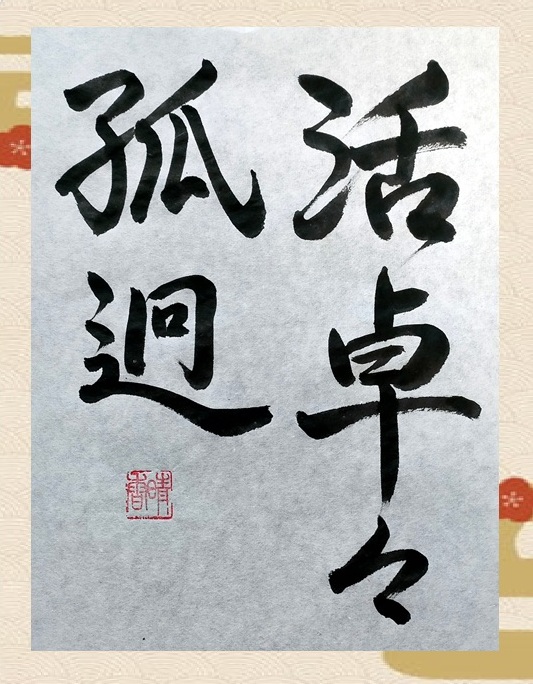 活卓々
孤迥
晴香